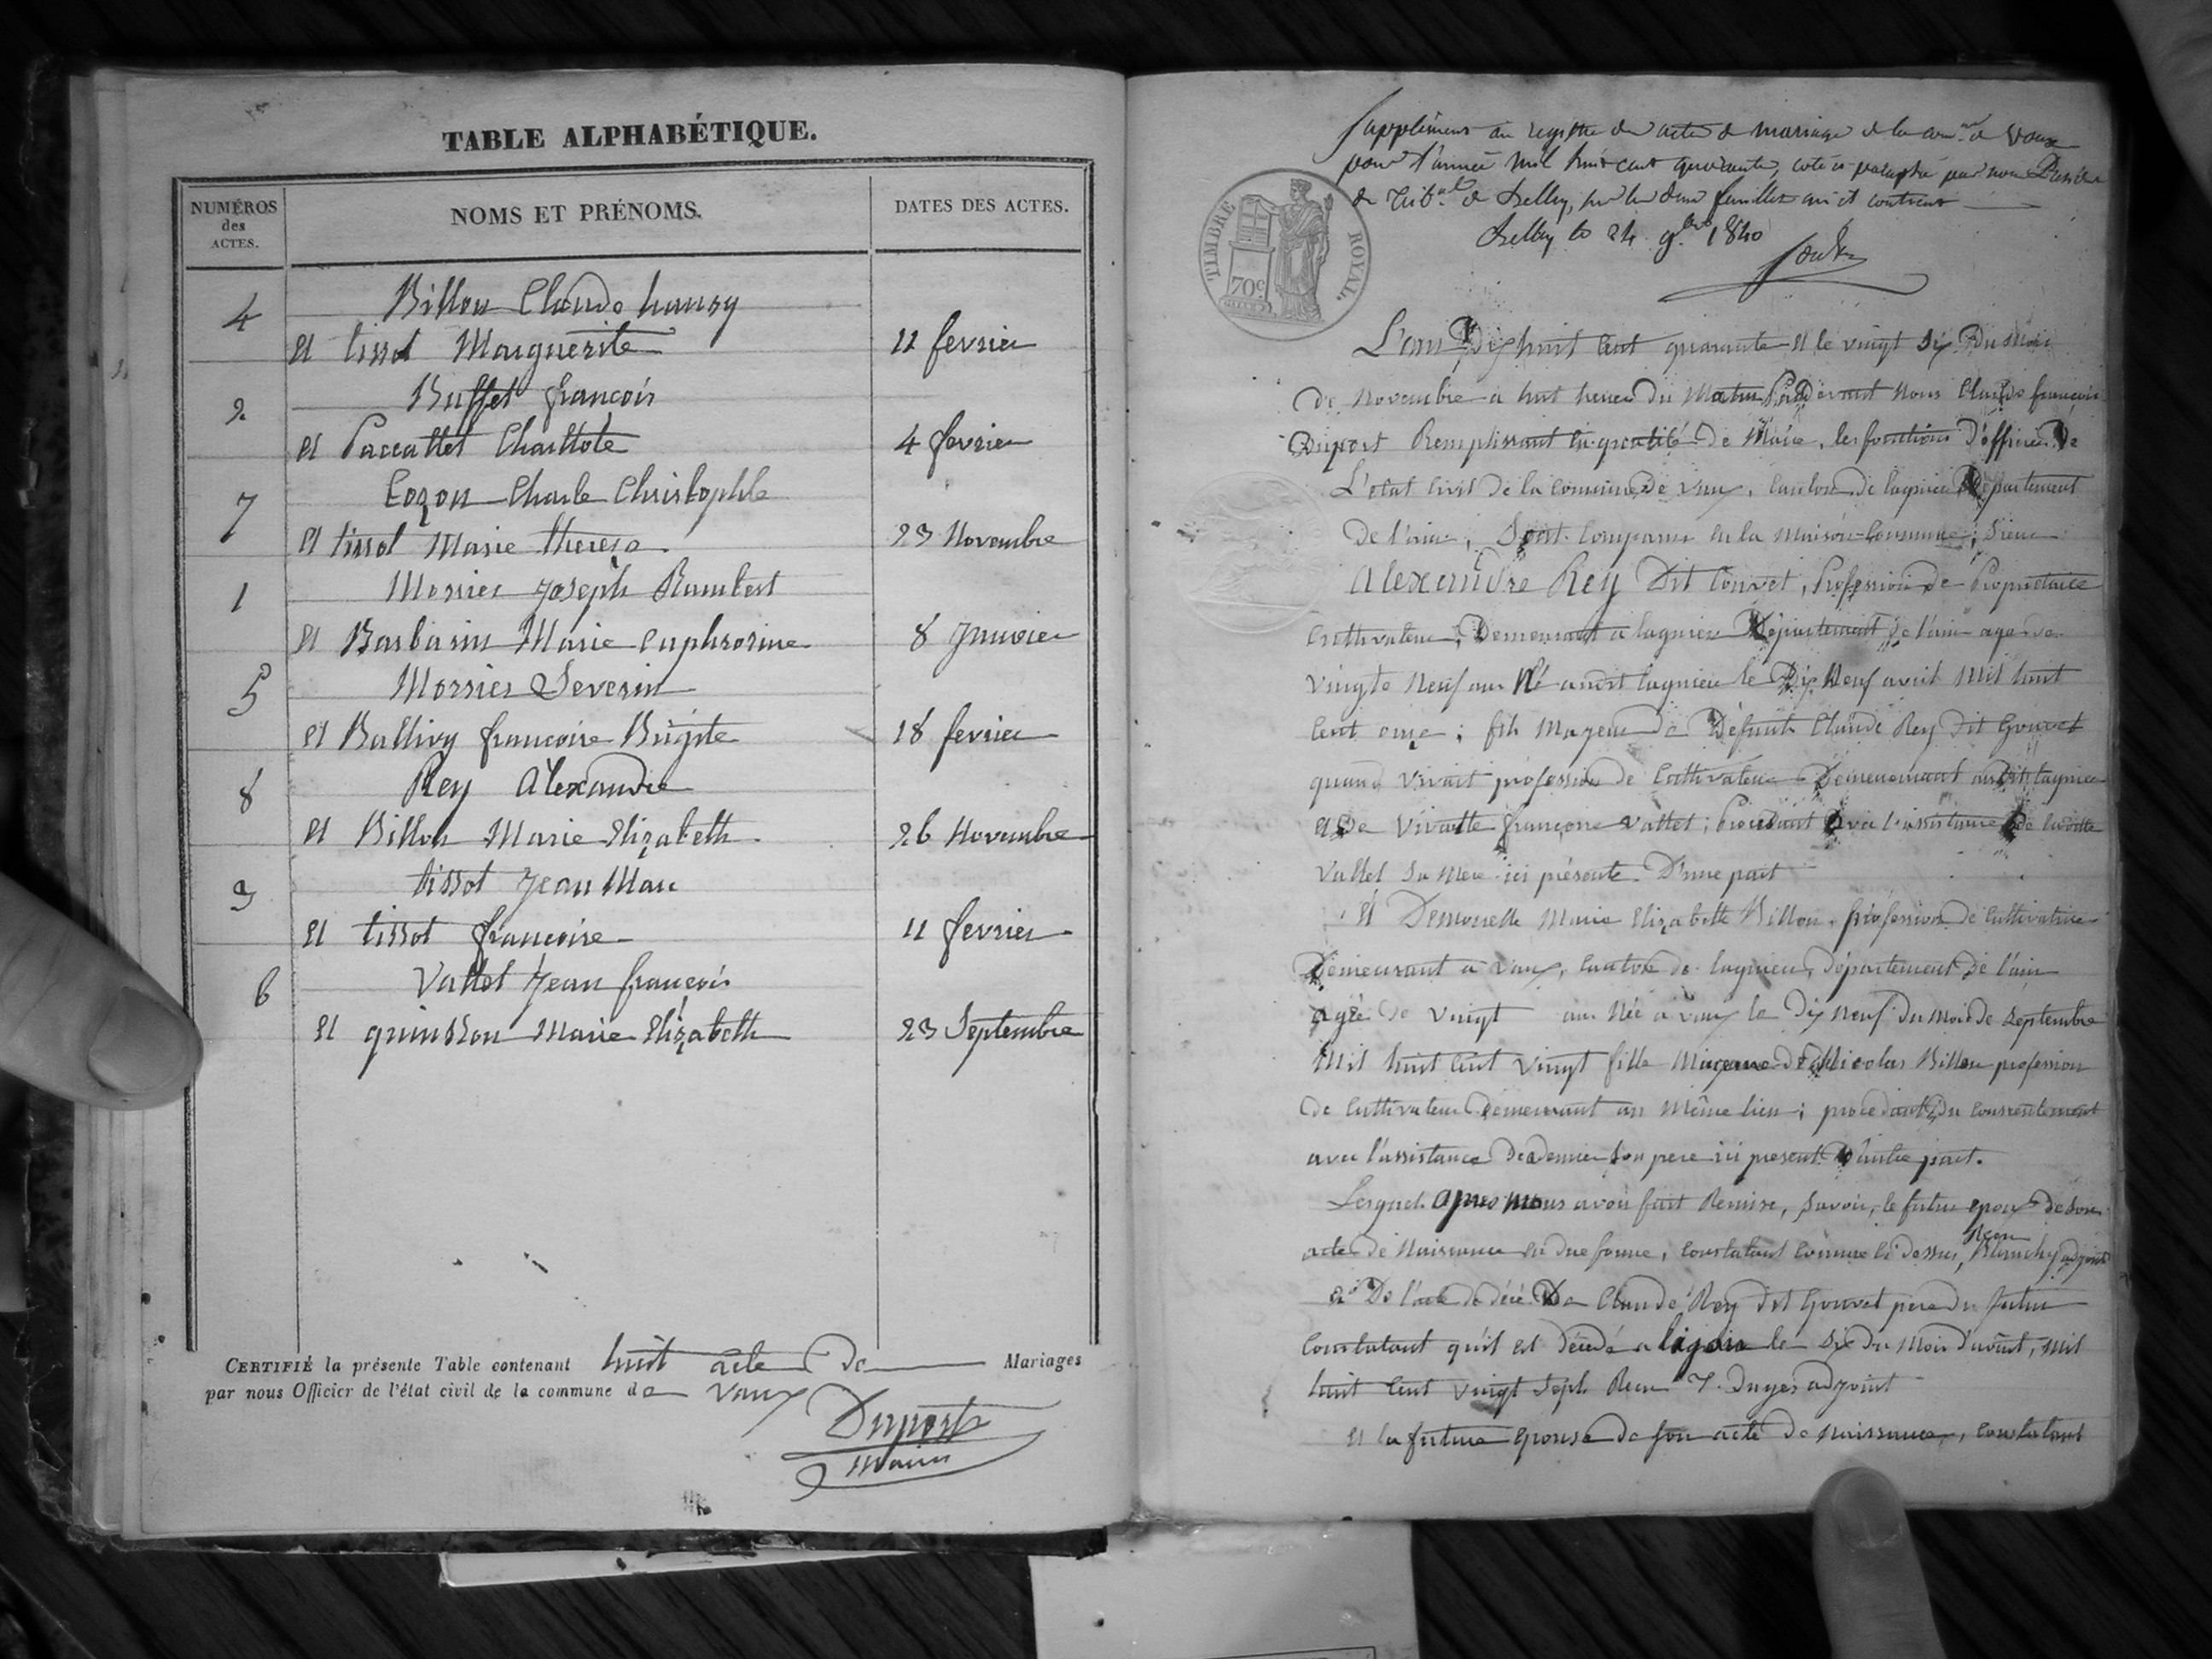 TABLE ALPHABÉTIQUE.
NUMÉROS
des
ACTES.
NOMS ET PRÉNOMS.
DATES DES ACTES.
4 Billon Claude
et tissot Marguerite 11 fevrier
2 Buffet francois
et Paccallet Charllote 4 fevrier
7 Cozon Charle Christophle
et tissot Marie therese 23 Novembre
1 Morrier Joseph Rambert
et Barbarin Marie Euphrosine 8 Janvier
5 Morrier Severin
et Ballivy francoise Brigite 18 fevrier
8 Rey Alexandre
et Billon Marie Elizabeth 26 Novembre
3 tissot Jean Marc
et tissot francoise 11 fevrier
6 Vallet Jean françois
et quinson Marie Elizabeth 23 Septembre
CERTIFIÉ la présente Table contenant huit acte de Mariages
par nous Officier de l'état civil de la commune de Vaux
Duport
Maire
Supplément au registre des actes de mariage de la de Vaux
pour l'année mil huit cent quarante, coté et paraphé par nous
de de Belley, sur les deux feuillets qu'il contient
Belley le 24 9bre 1840
TIMBRE ROYAL.
70c
L'an Dix huit Cent quarante et le vingt Six Du Mois
De Novembre a huit heures Du Matin Pardevant Nous Claude françois
Duport Remplissant En qualité De Maire, les fonctions D'officier De
L'etat Civil De la Commune De Vaux, Canton De lagnieu Département
De l'ain, Sont Comparus En la Maison Commune; Sieur
Alexandre Rey Dit Gouvet, Profession De Propriétaire
Cultivateur, Demeurant a lagnieu Département De l'ain age De
Vingte Neuf ans Né audit lagnieu le Dix Neuf avril Mil huit
Cent onze; fils Mageur De Défunt Claude Rey Dit Gouvet
quand Vivait profession De Cultivateur Demeurant audit lagnieu
et De Vivante françoise Vallet; Procédant avec l'assistance De ladite
Vallet Sa Mere ici présente. D'une part
Et Demoiselle Marie Elizabeth Billon, profession De Cultivatrice
Demeurant a Vaux, Canton De lagnieu, Département De l'ain
agée De Vingt ans Née a Vaux le Dix Neuf Du Mois De Septembre
Mil huit Cent Vingt fille Mineure De Nicolas Billon profession
De Cultivateur Demeurant au Même lieu; procedant Du Consentement
avec l'assistance De Dernier Son pere ici present D'autre part.
Lesquels apres Nous avoir fait Remise, Savoir, le futur epoux De Son
acte De Naissance En Due forme, Constatant Comme Ci dessus, Signé adjoint
2° De l'acte De décé De Claude Rey Dit Gouvet pere Du futur
Constatant qu'il Est Décédé a le Six Du Mois D'avril, Mil
huit Cent Vingt Sept adjoint
Et la future Epouse De Son acte De Naissance, Constatant